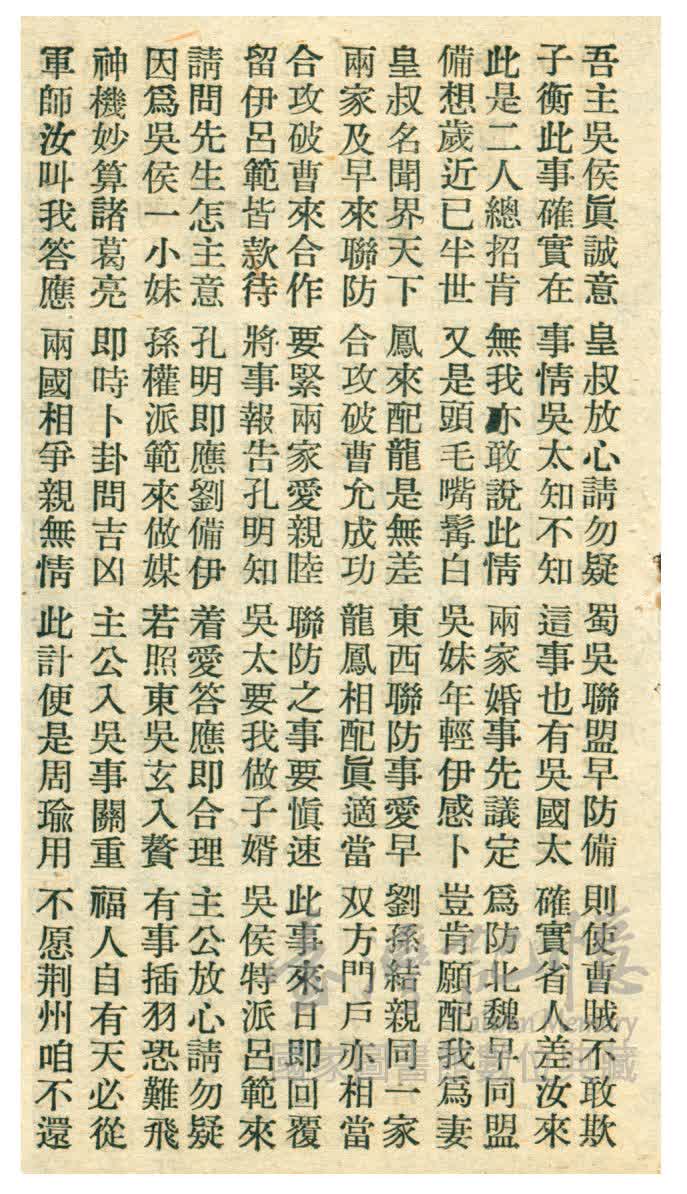 吾主吳侯眞誠意 皇叔放心請勿疑 蜀吳聯盟早防備 則使曹賊不敢欺
子衡此事確實在 事情吳太知不知 這事也有吳國太 確實省人差汝來
此是二人總招肯 無我亦敢說此情 兩家婚事先議定 爲防北魏早同盟
備想歲近已半世 又是頭毛嘴鬍白 吳妹年輕伊感卜 豈肯願配我爲妻
皇叔名聞界天下 鳳來配龍是無差 東西聯防事愛早 劉孫結親同一家
兩家及早來聯防 合攻破曹允成功 龍鳳相配眞適當 双方門戶亦相當
合攻破曹來合作 要緊兩家愛親睦 聯防之事要愼速 此事來日即回覆
留伊呂範皆款待 將事報告孔明知 吳太要我做子婿 吳侯特派呂範來
請問先生怎主意 孔明即應劉備伊 着愛答應即合理 主公放心請勿疑
因爲吳侯一小妹 孫權派範來做媒 若照東吳玄入贅 有事插羽恐難飛
神機妙算諸葛亮 即時卜卦問吉凶 主公入吳事關重 福人自有天必從
軍師汝叫我答應 兩國相爭親無情 此計便是周瑜用 不愿荆州咱不還
臺灣記憶
Taiwan Memory
國家圖書館數位典藏